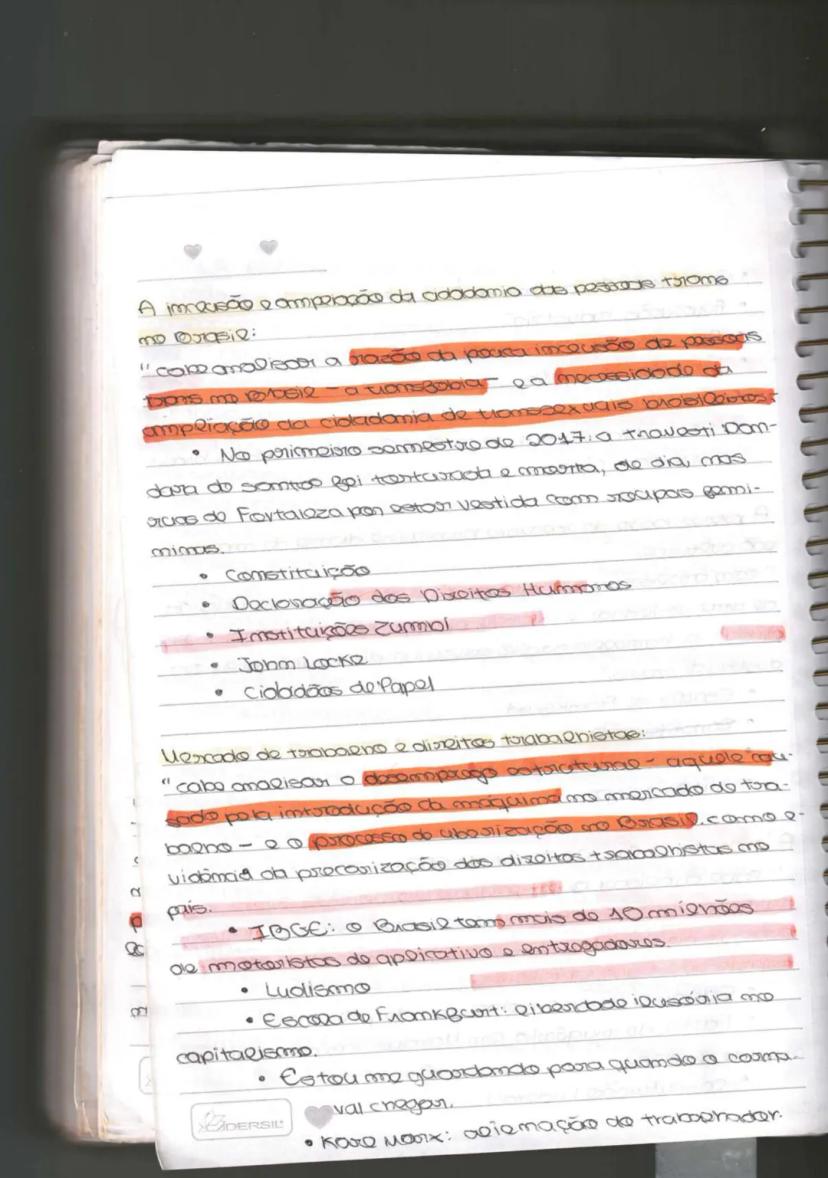 A inclusão e ampliação da cidadania das pessoas trans
no Brasil:
"cabe analisar a razão da pouca inclusão de pessoas
trans no Brasil - a transfobia - e a necessidade da
ampliação da cidadania de transsexuais brasileiros.
• No primeiro semestre de 2017, a travesti Dan-
dara do santos foi torturada e morta, de dia, nas
ruas de Fortaleza por estar vestida com roupas femi-
ninas.
• Constituição
• Declaração dos Direitos Humanos
• Instituições Zumbi
• John Locke
• Cidadãos de Papel
Mercado de trabalho e direitos trabalhistas:
"cabe analisar o desemprego estrutural - aquele cau-
sado pela introdução da máquina no mercado de tra-
balho - e o processo de uberização no Brasil, como e-
vidência da precarização dos direitos trabalhistas no
país.
• IBGE: o Brasil tem mais de 10 milhões
de motoristas de aplicativo e entregadores.
• Ludismo
• Escola de Frankfurt: liberdade ilusória no
capitalismo.
• Estou me guardando para quando o carna-
val chegar.
• Karl Marx: alienação do trabalhador.
DERSIL